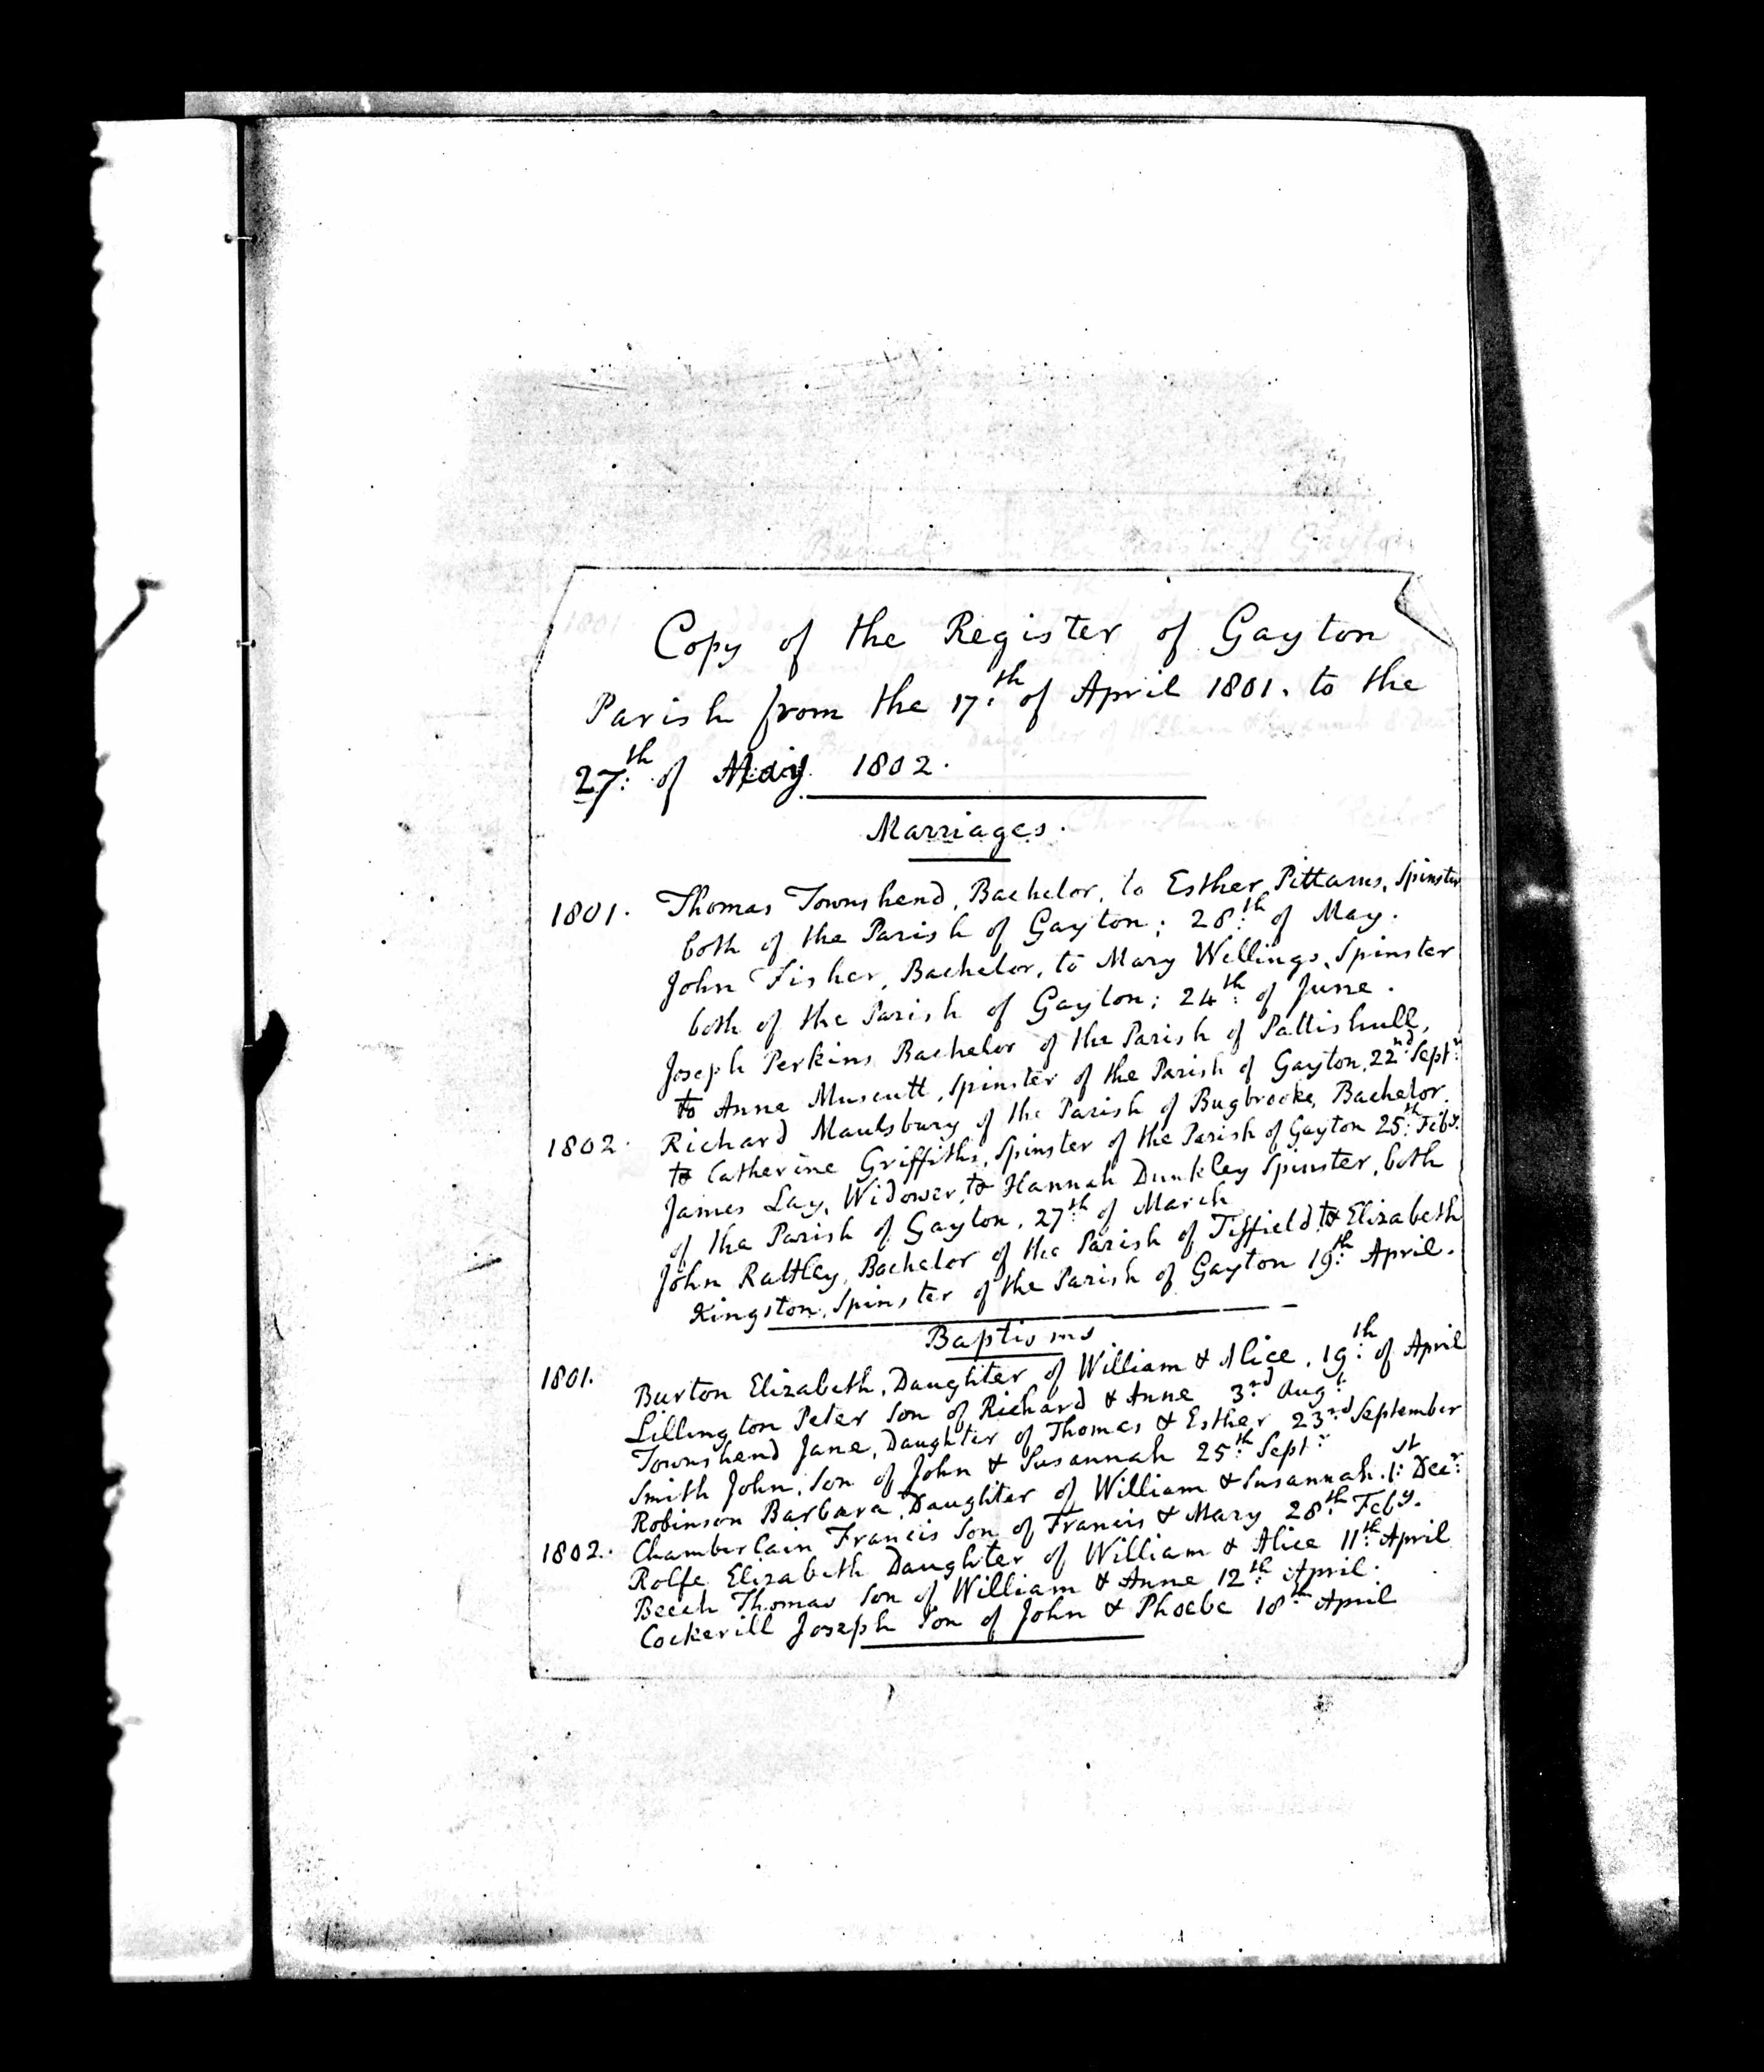 Copy of the Register of Gayton
Parish from the 17th of April 1801. to the
27th of May 1802.
Marriages.
1801. Thomas Townshend, Bachelor, to Esther Pittams, Spinster
both of the Parish of Gayton; 28th of May.
John Fisher, Bachelor, to Mary Wellings, Spinster
both of the Parish of Gayton; 24th of June.
Joseph Perkins Bachelor of the Parish of Pattishull,
to Anne Muscutt, Spinster of the Parish of Gayton, 22nd Sept.r
1802. Richard Maulsbury of the Parish of Bugbrooke, Bachelor.
to Catherine Griffiths, Spinster of the Parish of Gayton 25th Feby.
James Lay, Widower, to Hannah Dunkley Spinster, both
of the Parish of Gayton, 27th of March
John Rattley, Bachelor of the Parish of Tiffield to Elizabeth
Kingston, Spinster of the Parish of Gayton 19th April.
Baptisms
1801. Burton Elizabeth, Daughter of William & Alice, 19th of April
Lillington Peter Son of Richard & Anne 3rd Augt
Townshend Jane, Daughter of Thomas & Esther 23rd September
Smith John, Son of John & Susannah 25th Septr
Robinson Barbara, Daughter of William & Susannah. 1st Decr
1802. Chamberlain Francis Son of Francis & Mary 28th Feby.
Rolfe Elizabeth Daughter of William & Alice 11th April
Beech Thomas Son of William & Anne 12th April.
Cockerill Joseph Son of John & Phoebe 18th April